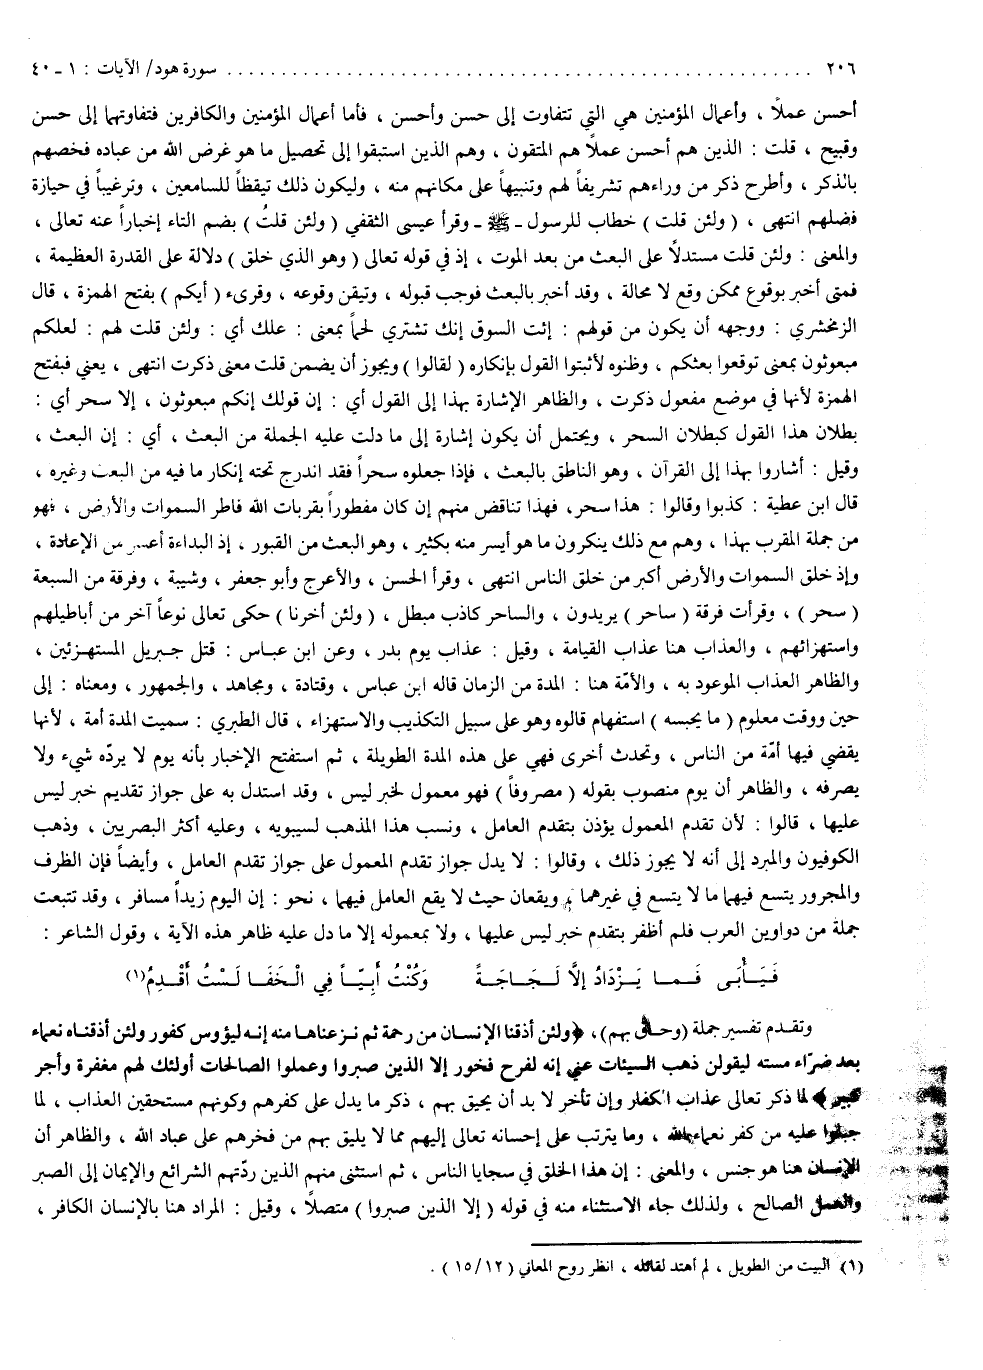 ٢٠٦ ............................................ سورة هود/ الآيات : ١ ـ ٤٠
أحسن عملاً ، وأعمال المؤمنين هي التي تتفاوت إلى حسن وأحسن ، فأما أعمال المؤمنين والكافرين فتفاوتهما إلى حسن
وقبيح ، قلت : الذين هم أحسن عملاً هم المتقون ، وهم الذين استبقوا إلى تحصيل ما هو غرض الله من عباده فخصهم
بالذكر ، وأطرح ذكر من وراءهم تشريفاً لهم وتنبيهاً على مكانهم منه ، وليكون ذلك تيقظاً للسامعين ، وترغيباً في حيازة
فضلهم انتهى ، ( ولئن قلت ) خطاب للرسول ـ ﷺ ـ وقرأ عيسى الثقفي ( ولئن قلتُ ) بضم التاء إخباراً عنه تعالى ،
والمعنى : ولئن قلت مستدلاً على البعث من بعد الموت ، إذ في قوله تعالى ( وهو الذي خلق ) دلالة على القدرة العظيمة ،
فمتى أخبر بوقوع ممكن وقع لا محالة ، وقد أخبر بالبعث فوجب قبوله ، وتيقن وقوعه ، وقرىء ( أيكم ) بفتح الهمزة ، قال
الزمخشري : ووجهه أن يكون من قولهم : إئت السوق إنك تشتري لحماً بمعنى : علك أي : ولئن قلت لهم : لعلكم
مبعوثون بمعنى توقعوا بعثكم ، وظنوه لأثبتوا القول بإنكاره ( لقالوا ) ويجوز أن يضمن قلت معنى ذكرت انتهى ، يعني فبفتح
الهمزة لأنها في موضع مفعول ذكرت ، والظاهر الإشارة بهذا إلى القول أي : إن قولك إنكم مبعوثون ، إلا سحر أي :
بطلان هذا القول كبطلان السحر ، ويحتمل أن يكون إشارة إلى ما دلت عليه الجملة من البعث ، أي : إن البعث ،
وقيل : أشاروا بهذا إلى القرآن ، وهو الناطق بالبعث ، فإذا جعلوه سحراً فقد اندرج تحته إنكار ما فيه من البعث وغيره ،
قال ابن عطية : كذبوا وقالوا : هذا سحر، فهذا تناقض منهم إن كان مفطوراً بقربات الله فاطر السموات والأرض ، فهو
من جملة المقرب بهذا ، وهم مع ذلك ينكرون ما هو أيسر منه بكثير ، وهو البعث من القبور ، إذ البداءة أعسر من الإعادة ،
وإذ خلق السموات والأرض أكبر من خلق الناس انتهى ، وقرأ الحسن ، والأعرج وأبو جعفر ، وشيبة ، وفرقة من السبعة
( سحر ) ، وقرأت فرقة ( ساحر ) يريدون ، والساحر كاذب مبطل ، ( ولئن أخرنا ) حكى تعالى نوعاً آخر من أباطيلهم
واستهزائهم ، والعذاب هنا عذاب القيامة ، وقيل : عذاب يوم بدر ، وعن ابن عباس : قتل جبريل المستهزئين ،
والظاهر العذاب الموعود به ، والأمّة هنا : المدة من الزمان قاله ابن عباس ، وقتادة ، ومجاهد ، والجمهور ، ومعناه : إلى
حين ووقت معلوم ( ما يحبسه ) استفهام قالوه وهو على سبيل التكذيب والاستهزاء ، قال الطبري : سميت المدة أمة ، لأنها
يقضي فيها أمّة من الناس ، وتحدث أخرى فهي على هذه المدة الطويلة ، ثم استفتح الإخبار بأنه يوم لا يردّه شيء ولا
يصرفه ، والظاهر أن يوم منصوب بقوله ( مصروفاً ) فهو معمول لخبر ليس ، وقد استدل به على جواز تقديم خبر ليس
عليها ، قالوا : لأن تقدم المعمول يؤذن بتقدم العامل ، ونسب هذا المذهب لسيبويه ، وعليه أكثر البصريين ، وذهب
الكوفيون والمبرد إلى أنه لا يجوز ذلك ، وقالوا : لا يدل جواز تقدم المعمول على جواز تقدم العامل ، وأيضاً فإن الظرف
والمجرور يتسع فيهما ما لا يتسع في غيرهما ويقعان حيث لا يقع العامل فيهما ، نحو : إن اليوم زيداً مسافر ، وقد تتبعت
جملة من دواوين العرب فلم أظفر بتقدم خبر ليس عليها ، ولا بمعموله إلا ما دل عليه ظاهر هذه الآية ، وقول الشاعر :
فَيَأْبَى فَمَا يَزْدَادُ إلَّا لَجَاجَةً وَكُنْتُ أَبِيّاً فِي الْخَفَا لَسْتُ أَقْدِمُ(١)
وتقدم تفسير جملة (وحاق بهم)، ﴿ولئن أذقنا الإنسان من رحمة ثم نزعناها منه إنه ليؤوس كفور ولئن أذقناه نعماء
بعد ضرّاء مسته ليقولن ذهب السيئات عني إنه لفرح فخور إلا الذين صبروا وعملوا الصالحات أولئك لهم مغفرة وأجر
كبير﴾ لما ذكر تعالى عذاب الكفار وإن تأخر لا بد أن يحيق بهم ، ذكر ما يدل على كفرهم وكونهم مستحقين العذاب ، لما
جبلوا عليه من كفر نعماء الله ، وما يترتب على إحسانه تعالى إليهم مما لا يليق بهم من فخرهم على عباد الله ، والظاهر أن
الإنسان هنا هو جنس ، والمعنى : إن هذا الخلق في سجايا الناس ، ثم استثنى منهم الذين ردّتهم الشرائع والإيمان إلى الصبر
والعمل الصالح ، ولذلك جاء الاستثناء منه في قوله ( إلا الذين صبروا ) متصلاً ، وقيل : المراد هنا بالإنسان الكافر ،
(١) البيت من الطويل ، لم أهتد لقائله ، انظر روح المعاني ( ١٢/ ١٥ ) .